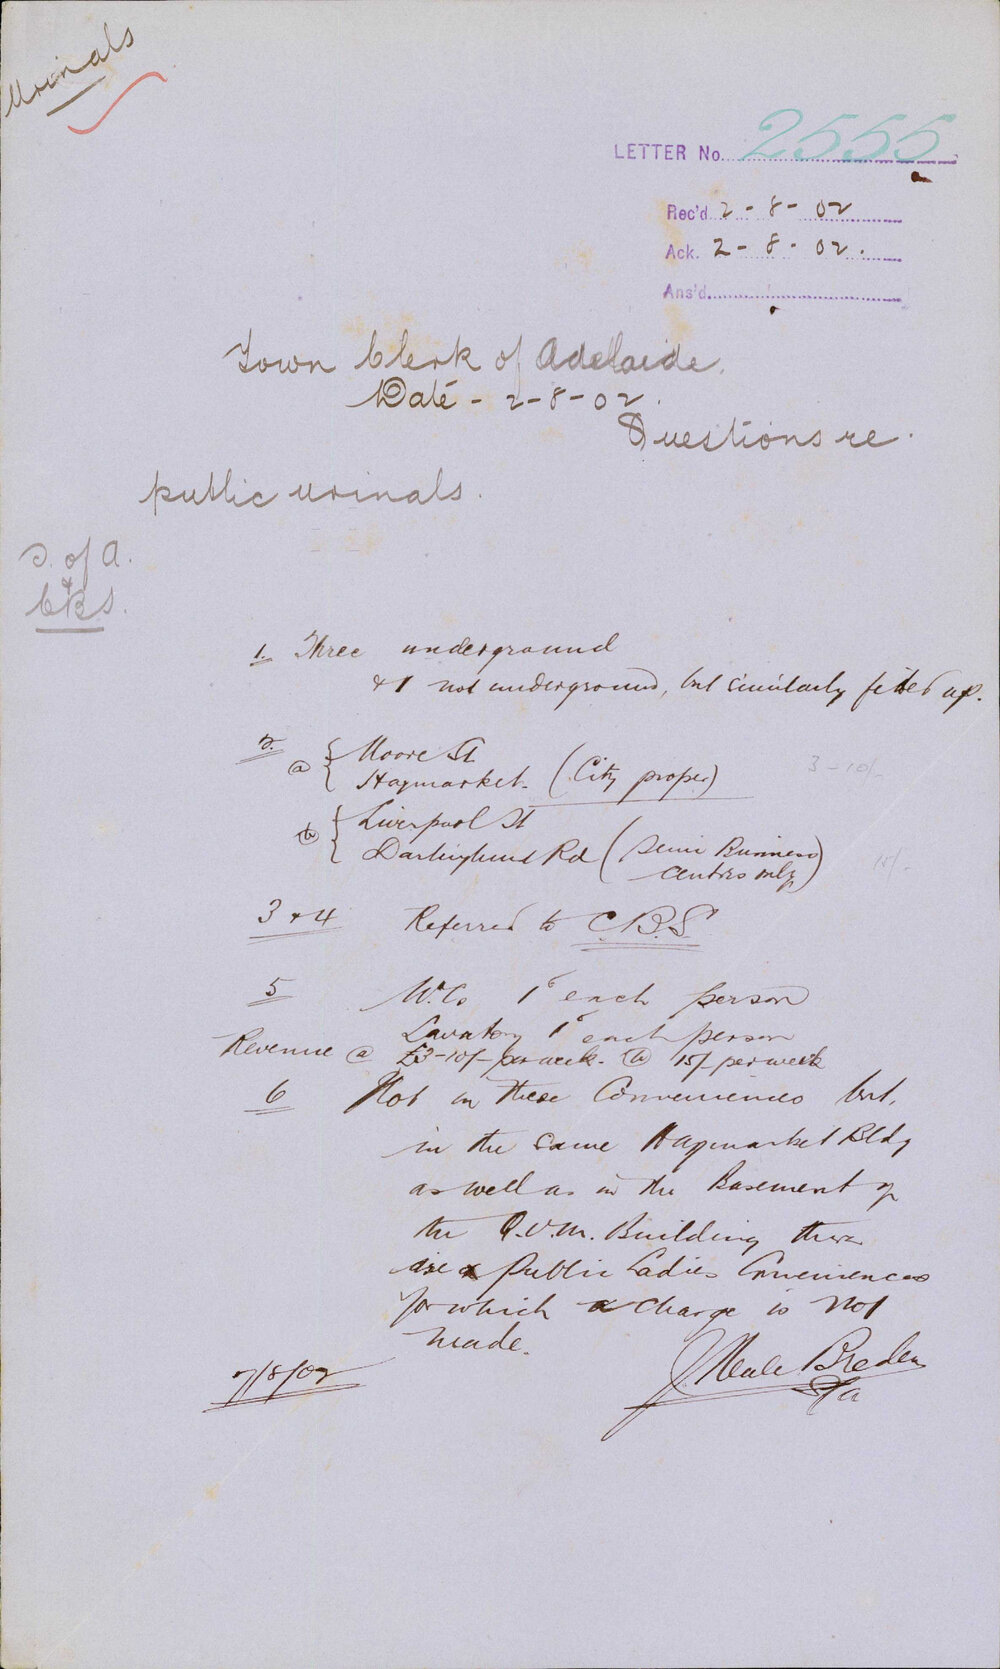 Urinals
LETTER No. 2555
Rec'd 2 - 8 - 02
Ack. 2 - 8 - 02.
Ans'd
Town Clerk of Adelaide.
Date - 2-8-02.
Questions re.
public urinals.
S. of A.
&
CBS.
1. Three underground
& 1 not underground, but similarly fitted up.
2.
(a) { Moore St
Haymarket. (City proper)
3-10/-
(b) { Liverpool St
Darlinghurst Rd (Semi Business
centres only)
15/-
3 & 4 Referred to C.B.S.
5 W.Cs 1d each person
Lavatory 1d each person
Revenue (a) £3-10/- per week. (b) 15/- per week
6 Not in these Conveniences but,
in the same Haymarket Bldg
as well as in the Basement of
the Q.V.M. Building there
are public Ladies Conveniences
for which a charge is not
made.
7/8/02
J. Neale Breden